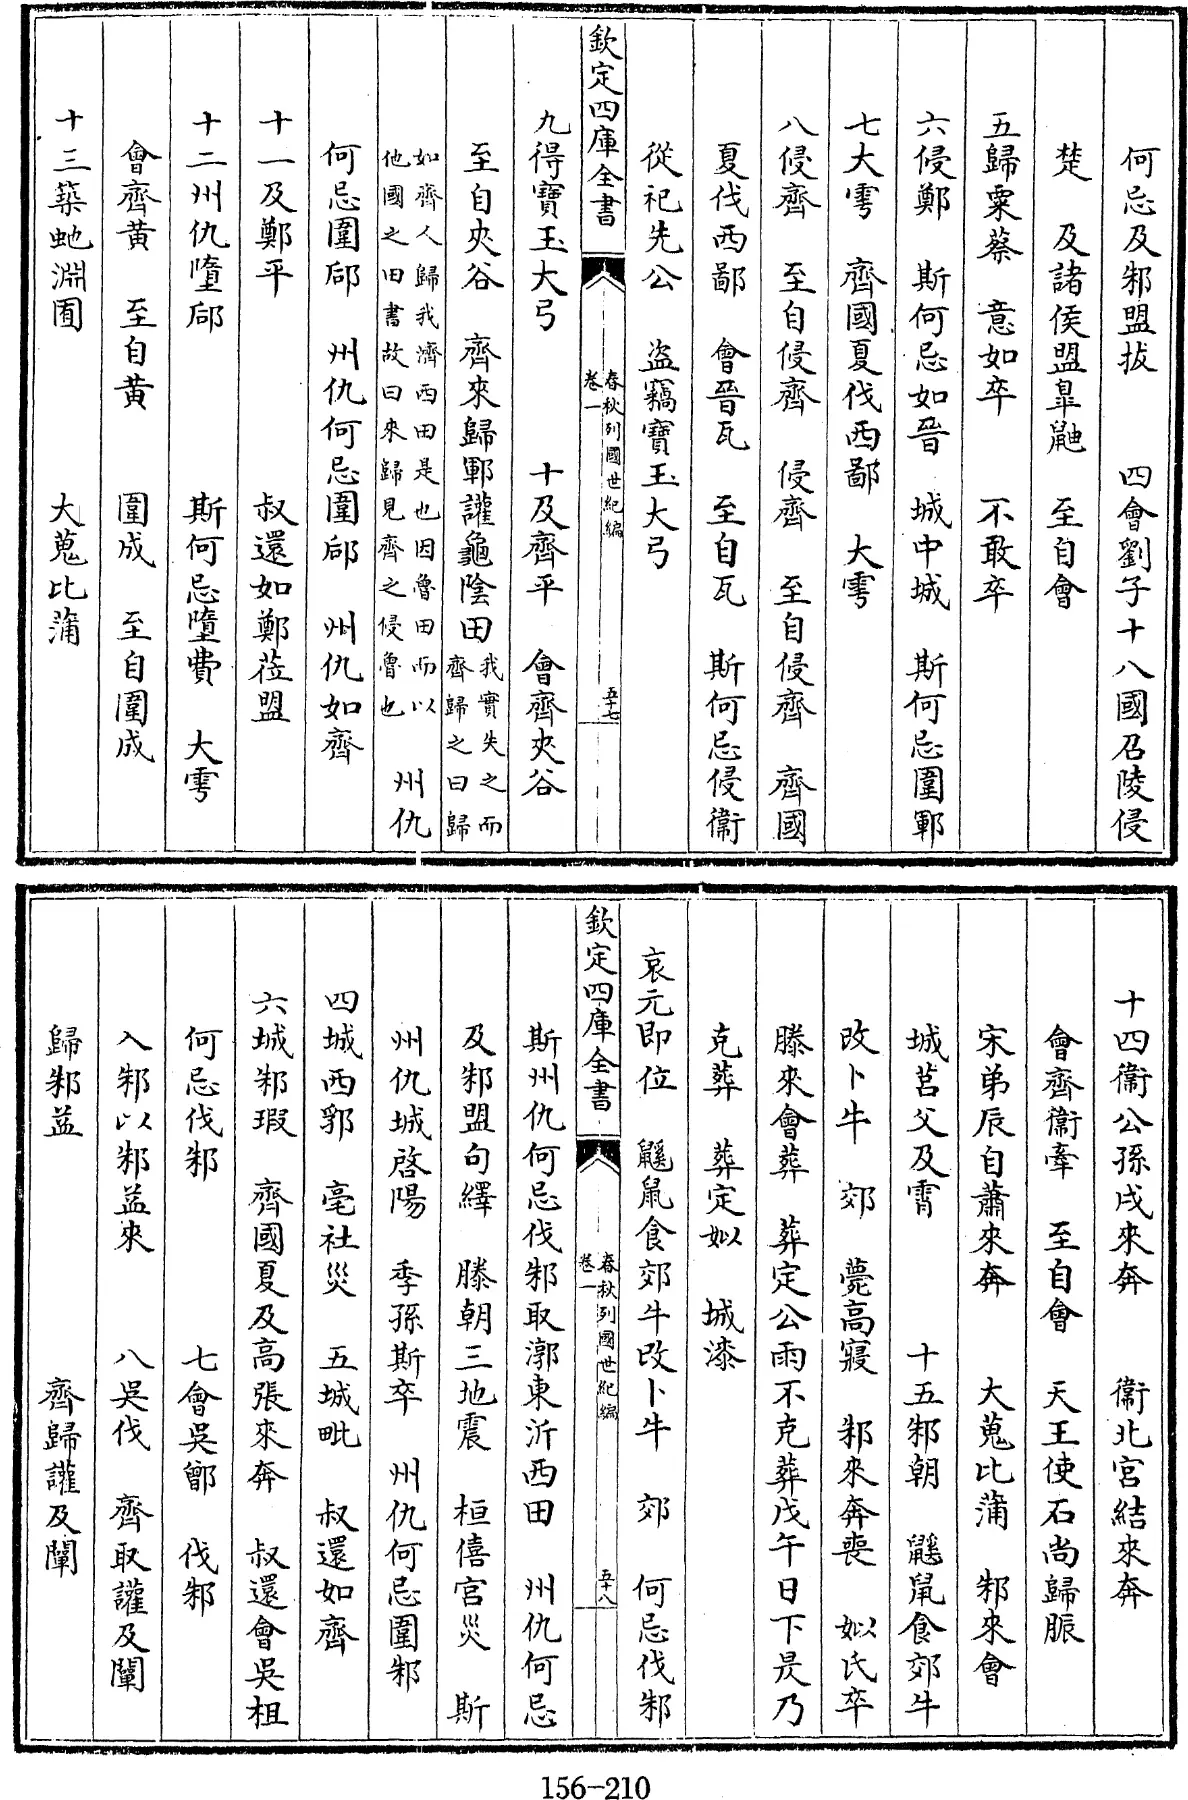 何忌及邾盟拔　四會劉子十八國召陵侵
楚　及諸侯盟皐鼬　至自會
五歸粟蔡　意如卒　不敢卒
六侵鄭　斯何忌如晉　城中城　斯何忌圍鄆
七大雩　齊國夏伐西鄙　大雩
八侵齊　至自侵齊　侵齊　至自侵齊　齊國
夏伐西鄙　會晉瓦　至自瓦　斯何忌侵衞
從祀先公　盗竊寶玉大弓
欽定四庫全書
春秋列國世紀編
卷一
五十七
九得寶玉大弓　十及齊平　會齊夾谷
至自夾谷　齊來歸鄆讙龜陰田我實失之而
齊歸之曰歸
如齊人歸我濟西田是也因魯田而以
他國之田書故曰來歸見齊之侵魯也　州仇
何忌圍郈　州仇何忌圍郈　州仇如齊
十一及鄭平　叔還如鄭蒞盟
十二州仇墮郈　斯何忌墮費　大雩
會齊黄　至自黄　圍成　至自圍成
十三築虵淵囿　大蒐比蒲
十四衞公孫戍來奔　衞北宮結來奔
會齊衞牽　至自會　天王使石尚歸脤
宋弟辰自蕭來奔　大蒐比蒲　邾來會
城莒父及霄　十五邾朝　鼷鼠食郊牛
改卜牛　郊　薨高寢　邾來奔喪　姒氏卒
滕來會葬　葬定公雨不克葬戊午日下昃乃
克葬　葬定姒　城漆
哀元即位　鼷鼠食郊牛改卜牛　郊　何忌伐邾
欽定四庫全書
春秋列國世紀編
卷一
五十八
斯州仇何忌伐邾取漷東沂西田　州仇何忌
及邾盟句繹　滕朝三地震　桓僖宮災　斯
州仇城啓陽　季孫斯卒　州仇何忌圍邾
四城西郛　亳社災　五城毗　叔還如齊
六城邾瑕　齊國夏及高張來奔　叔還會吳柤
何忌伐邾　七會吳鄫　伐邾
入邾以邾益來　八吳伐　齊取讙及闡
歸邾益　齊歸讙及闡
156-210